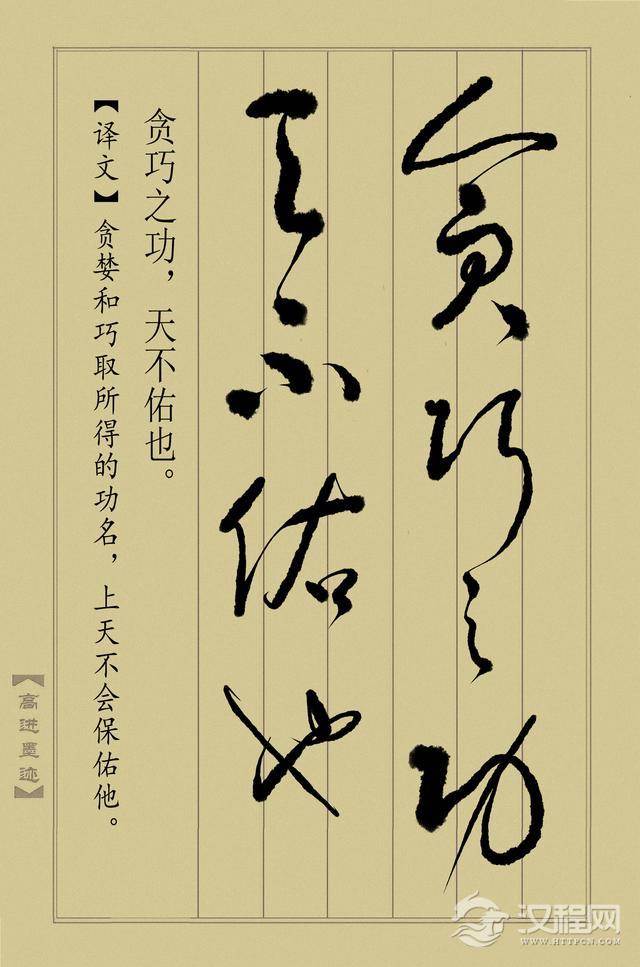 贪巧之功
天不佑也
贪巧之功，天不佑也。
【译文】贪婪和巧取所得的功名，上天不会保佑他。
【高进墨迹】
汉程网
WWW.HTTPCN.COM